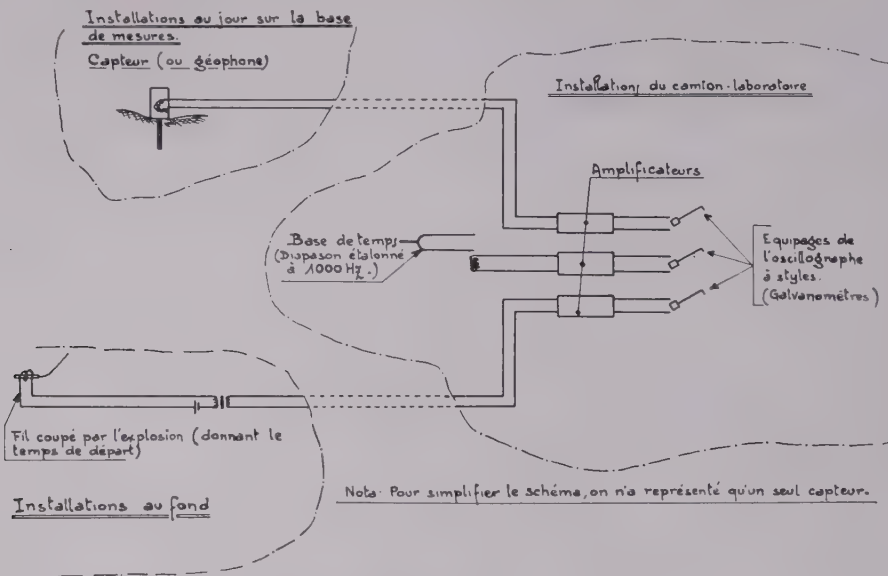 Installations au jour sur la base
de mesures.
Capteur (ou géophone)
Installations du camion-laboratoire
Amplificateurs
Base de temps
(Diapason étalonné
à 1000 Hz.)
Equipages de
l'oscillographe
à styles.
(Galvanomètres)
Fil coupé par l'explosion (donnant le
temps de départ)
Installations au fond
Nota. Pour simplifier le schéma, on n'a représenté qu'un seul capteur.